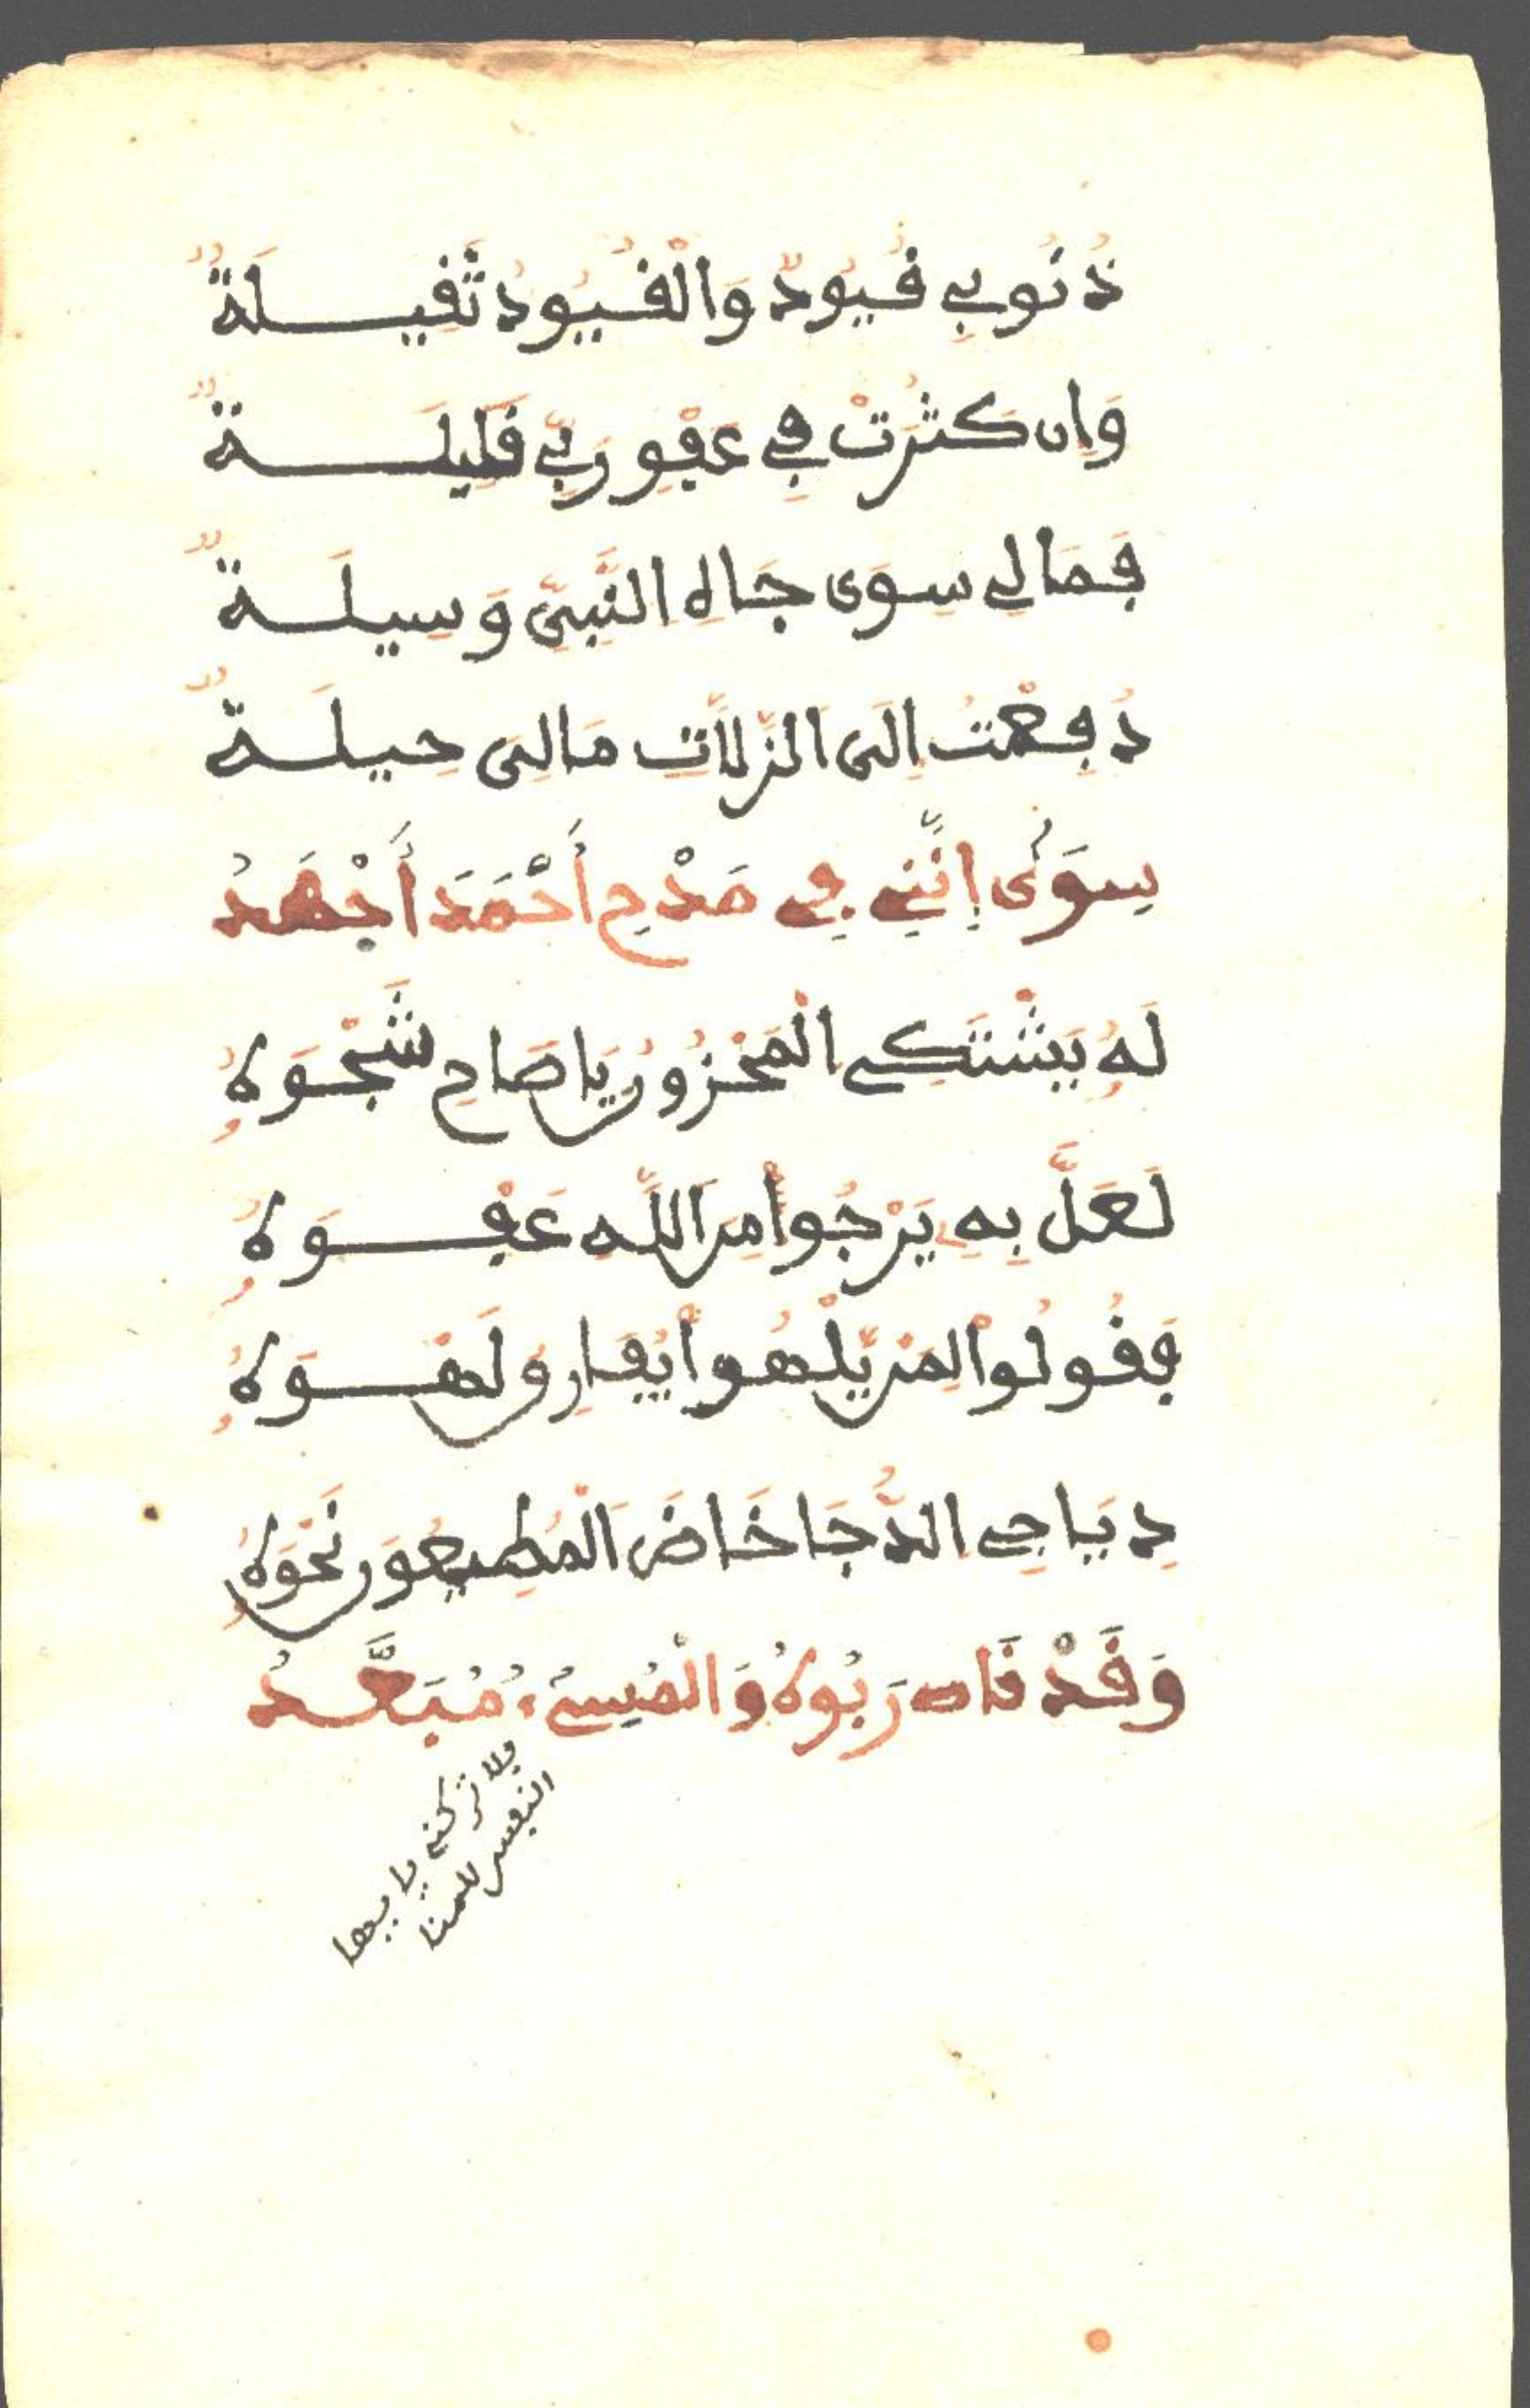 ذُنُوبِي قُيُودٌ وَالْقُيُودُ ثَقِيلَةٌ
وَإِن كَثُرَتْ فِي عَفْوِ رَبِّي قَلِيلَةٌ
فَمَا لِي سِوَى جَاهِ النَّبِيِّ وَسِيلَةٌ
دُفِعْتُ اِلَى الزَّلَّاتِ مَالِى حِيلَةٌ
سِوَى إِنَّنِي فِي مَدْحِ أَحْمَدَ أَجْهَدُ
لَهُ يَشْتَكِي الْمَحْزُونُ يَا صَاحِ شَجْوَهُ
لَعَلَّ بِهِ يَرْجُواْ مِنَ اللَّهِ عَفْوَهُ
فَقُولُواْ لِمَنْ يَلْهُواْ يُفَارِقُ لَهْوَهُ
دِيَاجِي الدُّجَا خَاضَ الْمُطِيعُونَ نَحْوَهُ
وَقَدْ قَارَبُوهُ وَالْمُسِيءُ مُبَعَّدُ
فلا تركني يا
النفس للمنا